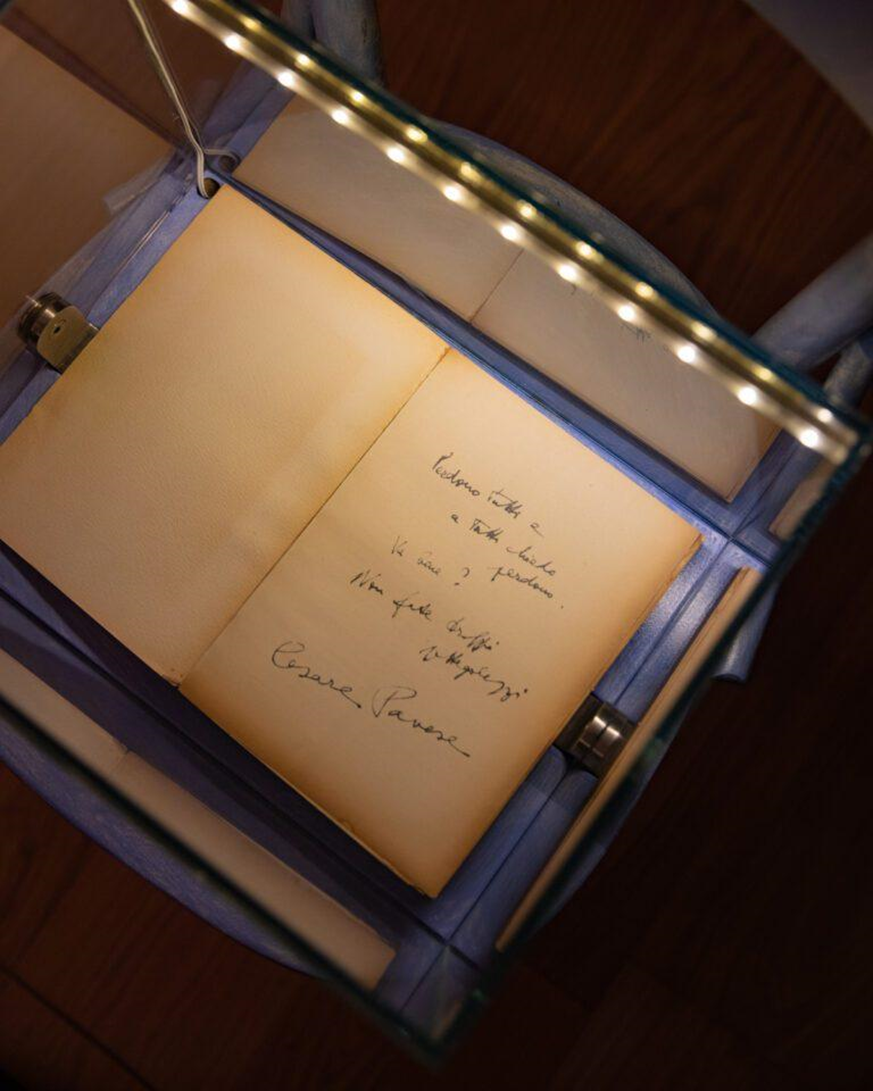 Perdono tutti e
a tutti chiedo
perdono.
Va bene?
Non fate troppi
pettegolezzi.
Cesare Pavese